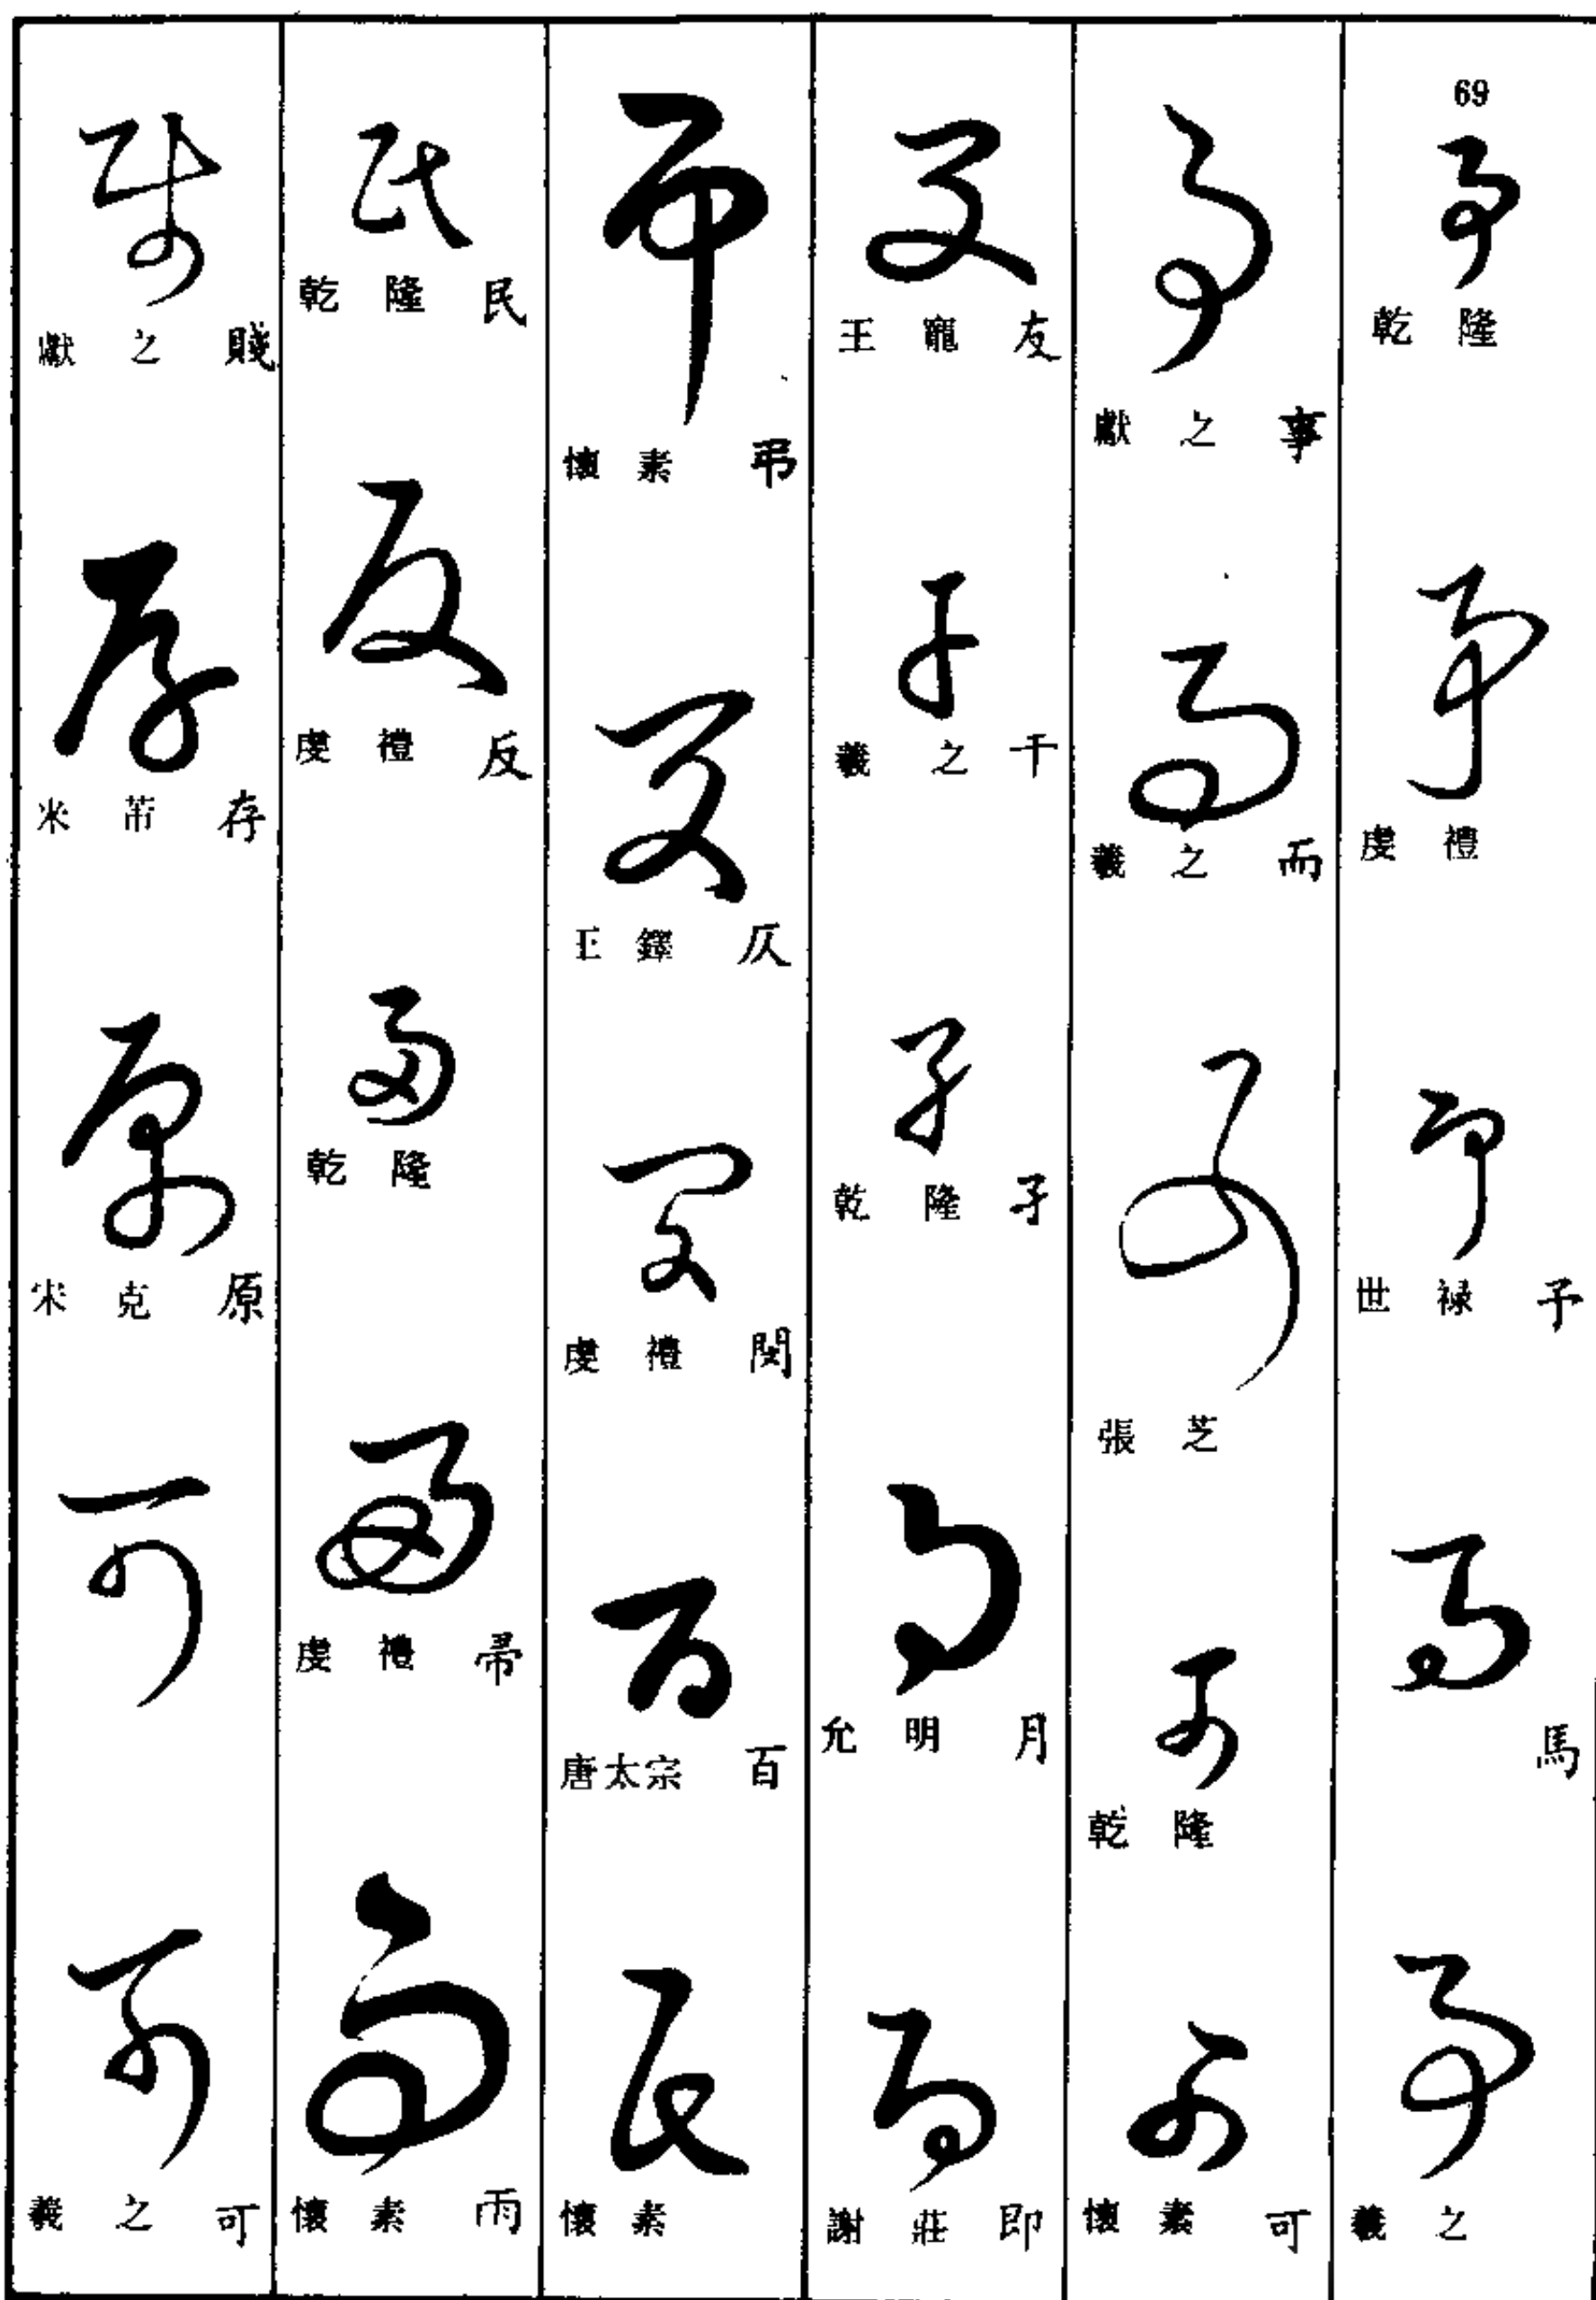 69
乾隆
虔禮
世禄 予
馬
羲之
獻之 事
羲之 而
張芝
乾隆
懷素 可
王寵 友
羲之 干
乾隆 孑
允明 月
謝莊 即
懷素 弔
王鐸 仄
虔禮 閔
唐太宗 百
懷素
乾隆 民
虔禮 反
乾隆
虔禮 帚
懷素 雨
獻之 賤
米芾 存
宋克 原
羲之 可